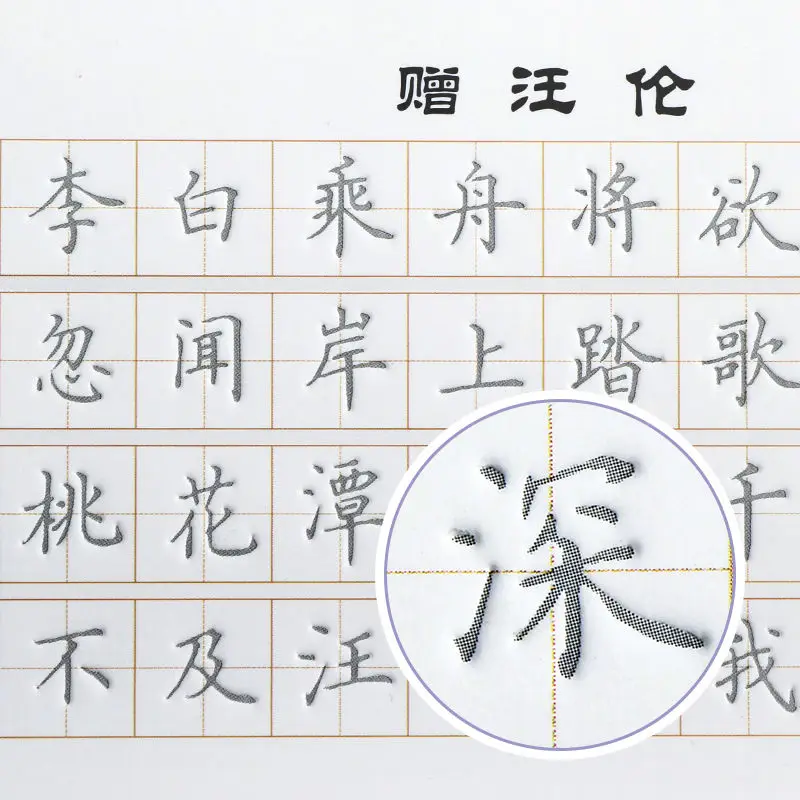 赠汪伦
李白乘舟将欲
忽闻岸上踏歌
桃花潭深千
不及汪我